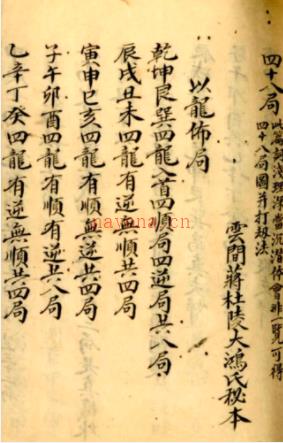 四十八局 此篇詞淺理深當沉潛体會非一覽可得
四十八局圖并打刼法
雲間蔣杜陵大鴻氏秘本
以龍佈局
乾坤艮巽四龍入首四順局四逆局共八局
辰戌丑未四龍有順無逆共四局
寅申巳亥四龍有順無逆共四局
子午卯酉四龍有順有逆共八局
乙辛丁癸四龍有逆無順共四局
nayana.cn